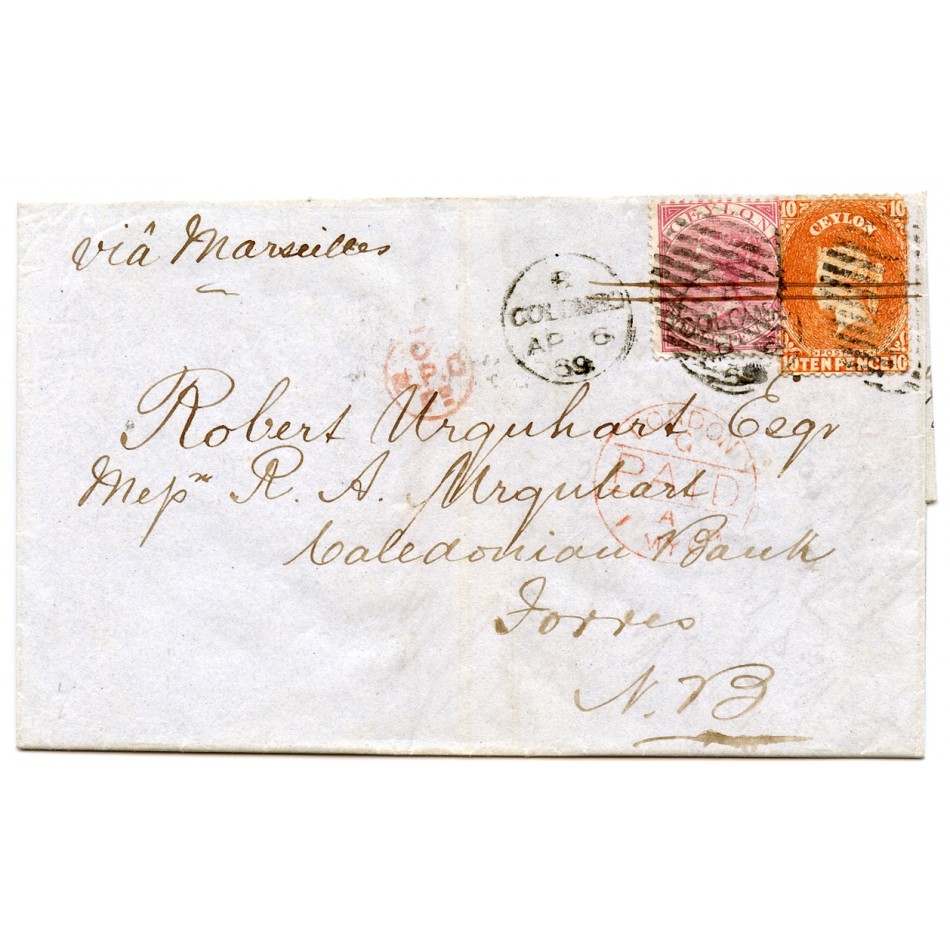 viâ Marseilles
CEYLON
10 10
CEYLON
POSTAGE
10 TEN PENCE 10
COLOMBO
AP 6
69
LONDON
C
PAID
A
MY
Robert Urquhart Esqr
Messrs R. A. Urquhart
Caledonian Bank
Forres
N.B